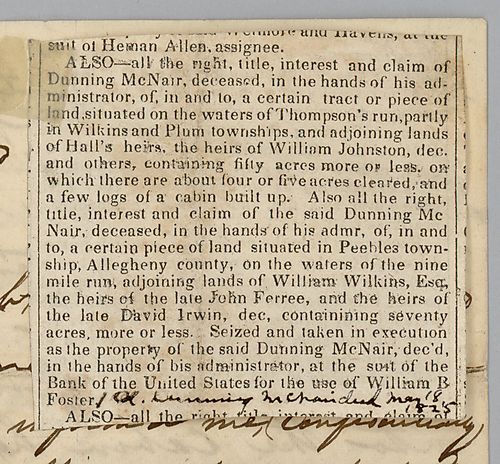 Wetmore and Havens, at the
suit of Heman Allen, assignee.
ALSO—all the right, title, interest and claim of
Dunning McNair, deceased, in the hands of his ad-
ministrator, of, in and to, a certain tract or piece of
land, situated on the waters of Thompson's run, partly
in Wilkins and Plum townships, and adjoining lands
of Hall's heirs, the heirs of William Johnston, dec.
and others, containing fifty acres more or less, on
which there are about four or five acres cleared, and
a few logs of a cabin built up. Also all the right,
title, interest and claim of the said Dunning Mc
Nair, deceased, in the hands of his admr, of, in and
to, a certain piece of land situated in Peebles town-
ship, Allegheny county, on the waters of the nine
mile run, adjoining lands of William Wilkins, Esq,
the heirs of the late John Ferree, and the heirs of
the late David Irwin, dec, containining seventy
acres, more or less. Seized and taken in execution
as the property of the said Dunning McNair, dec'd,
in the hands of his administrator, at the suit of the
Bank of the United States for the use of William B
Foster,
May 18
1825
ALSO—all the right title, interest and claim of
me